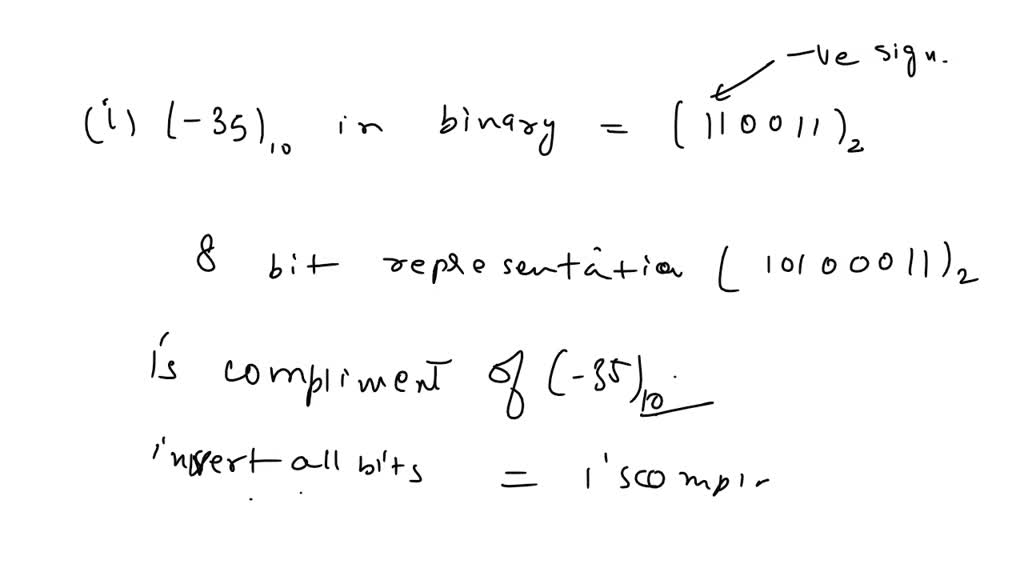 -ve sign.
(i) (-35)10 in binary = (110011)2
8 bit representation (10100011)2
1's compliment of (-35)10
invert all bits = 1's compli